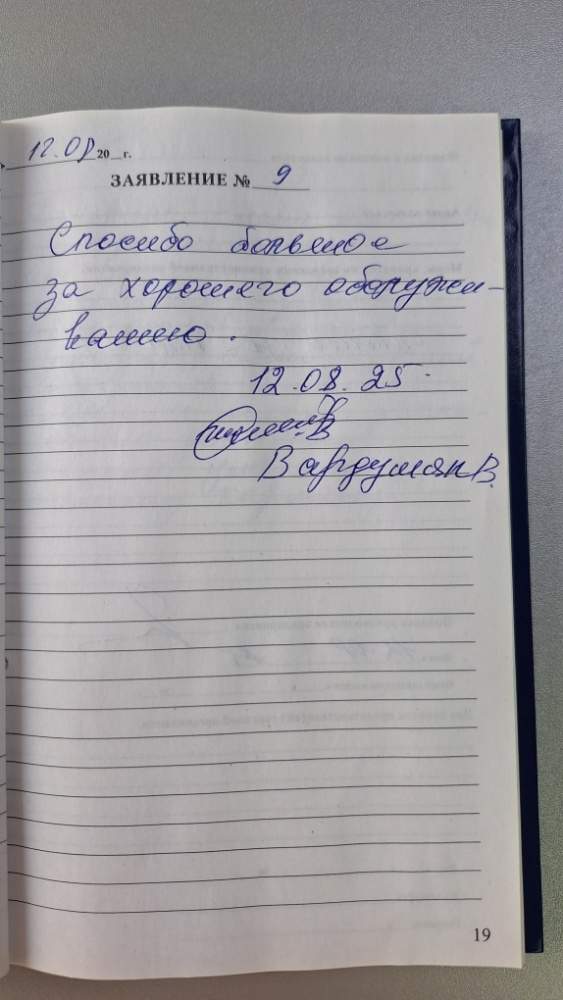 12.08 20__г.
ЗАЯВЛЕНИЕ № 9
Спосибо большое
за хорошего обаружи-
ванию.
12.08.25.
Вардумян В.
19